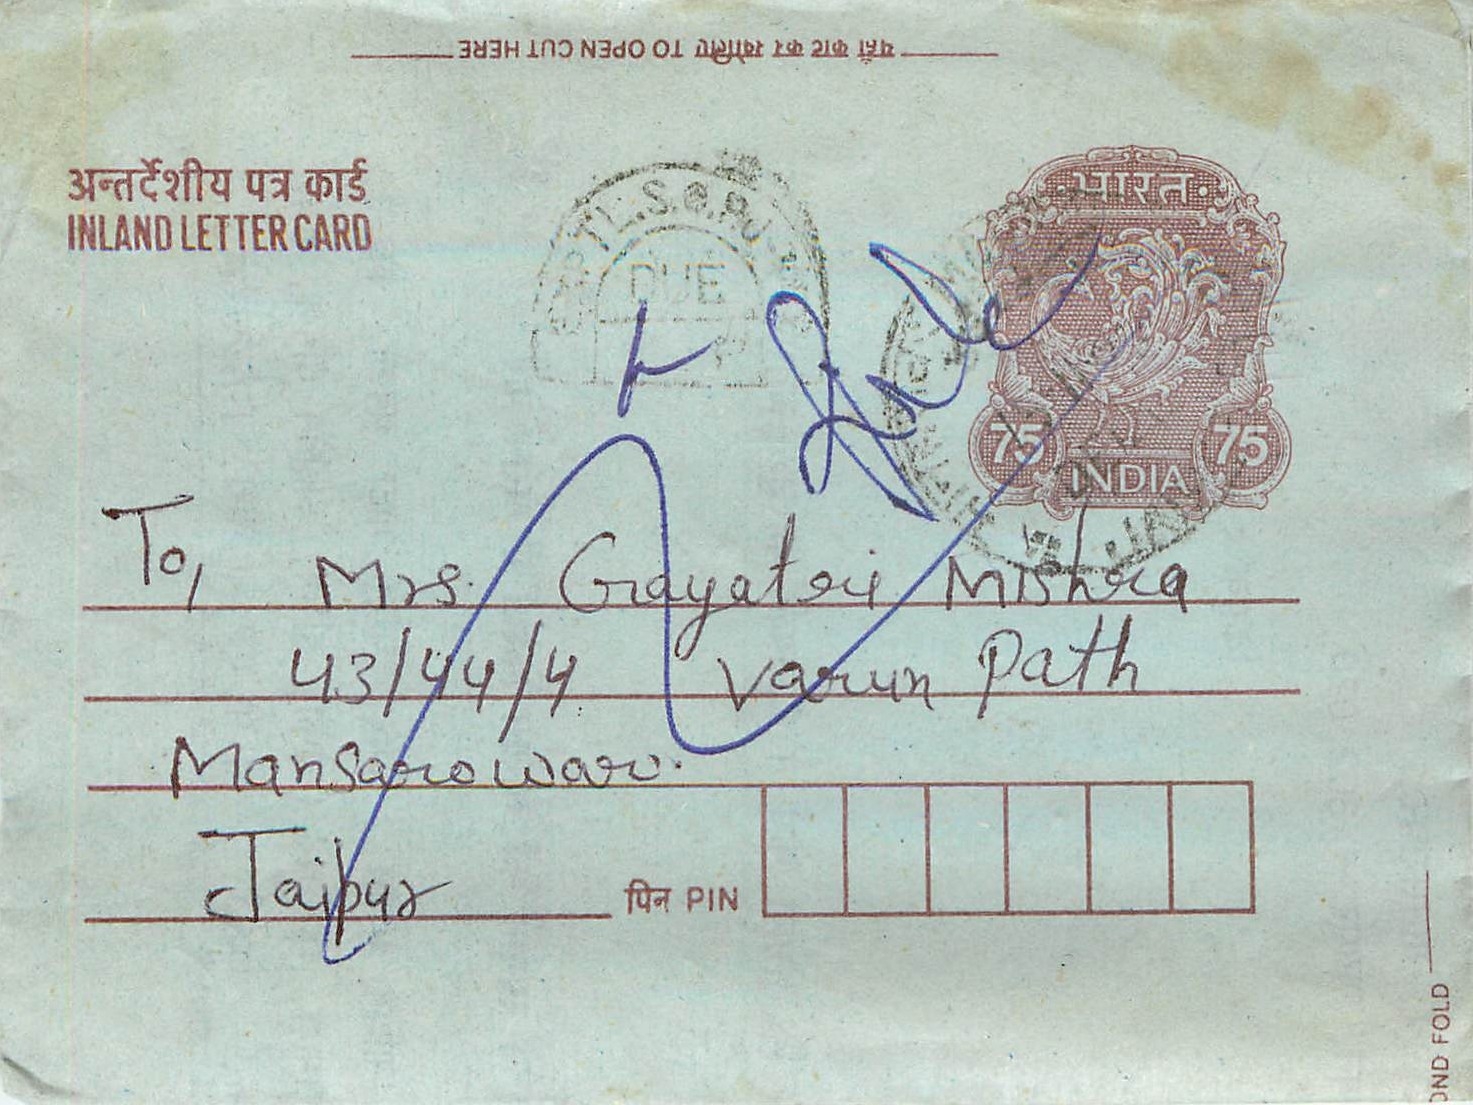 यहाँ काट कर खोलिए TO OPEN CUT HERE
अन्तर्देशीय पत्र कार्ड
INLAND LETTER CARD
भारत
75 75
INDIA
DUE
To,
Mrs. Gayatri Mishra
43/44/4 Varun Path
Mansarowar.
Jaipur
पिन PIN
OND FOLD